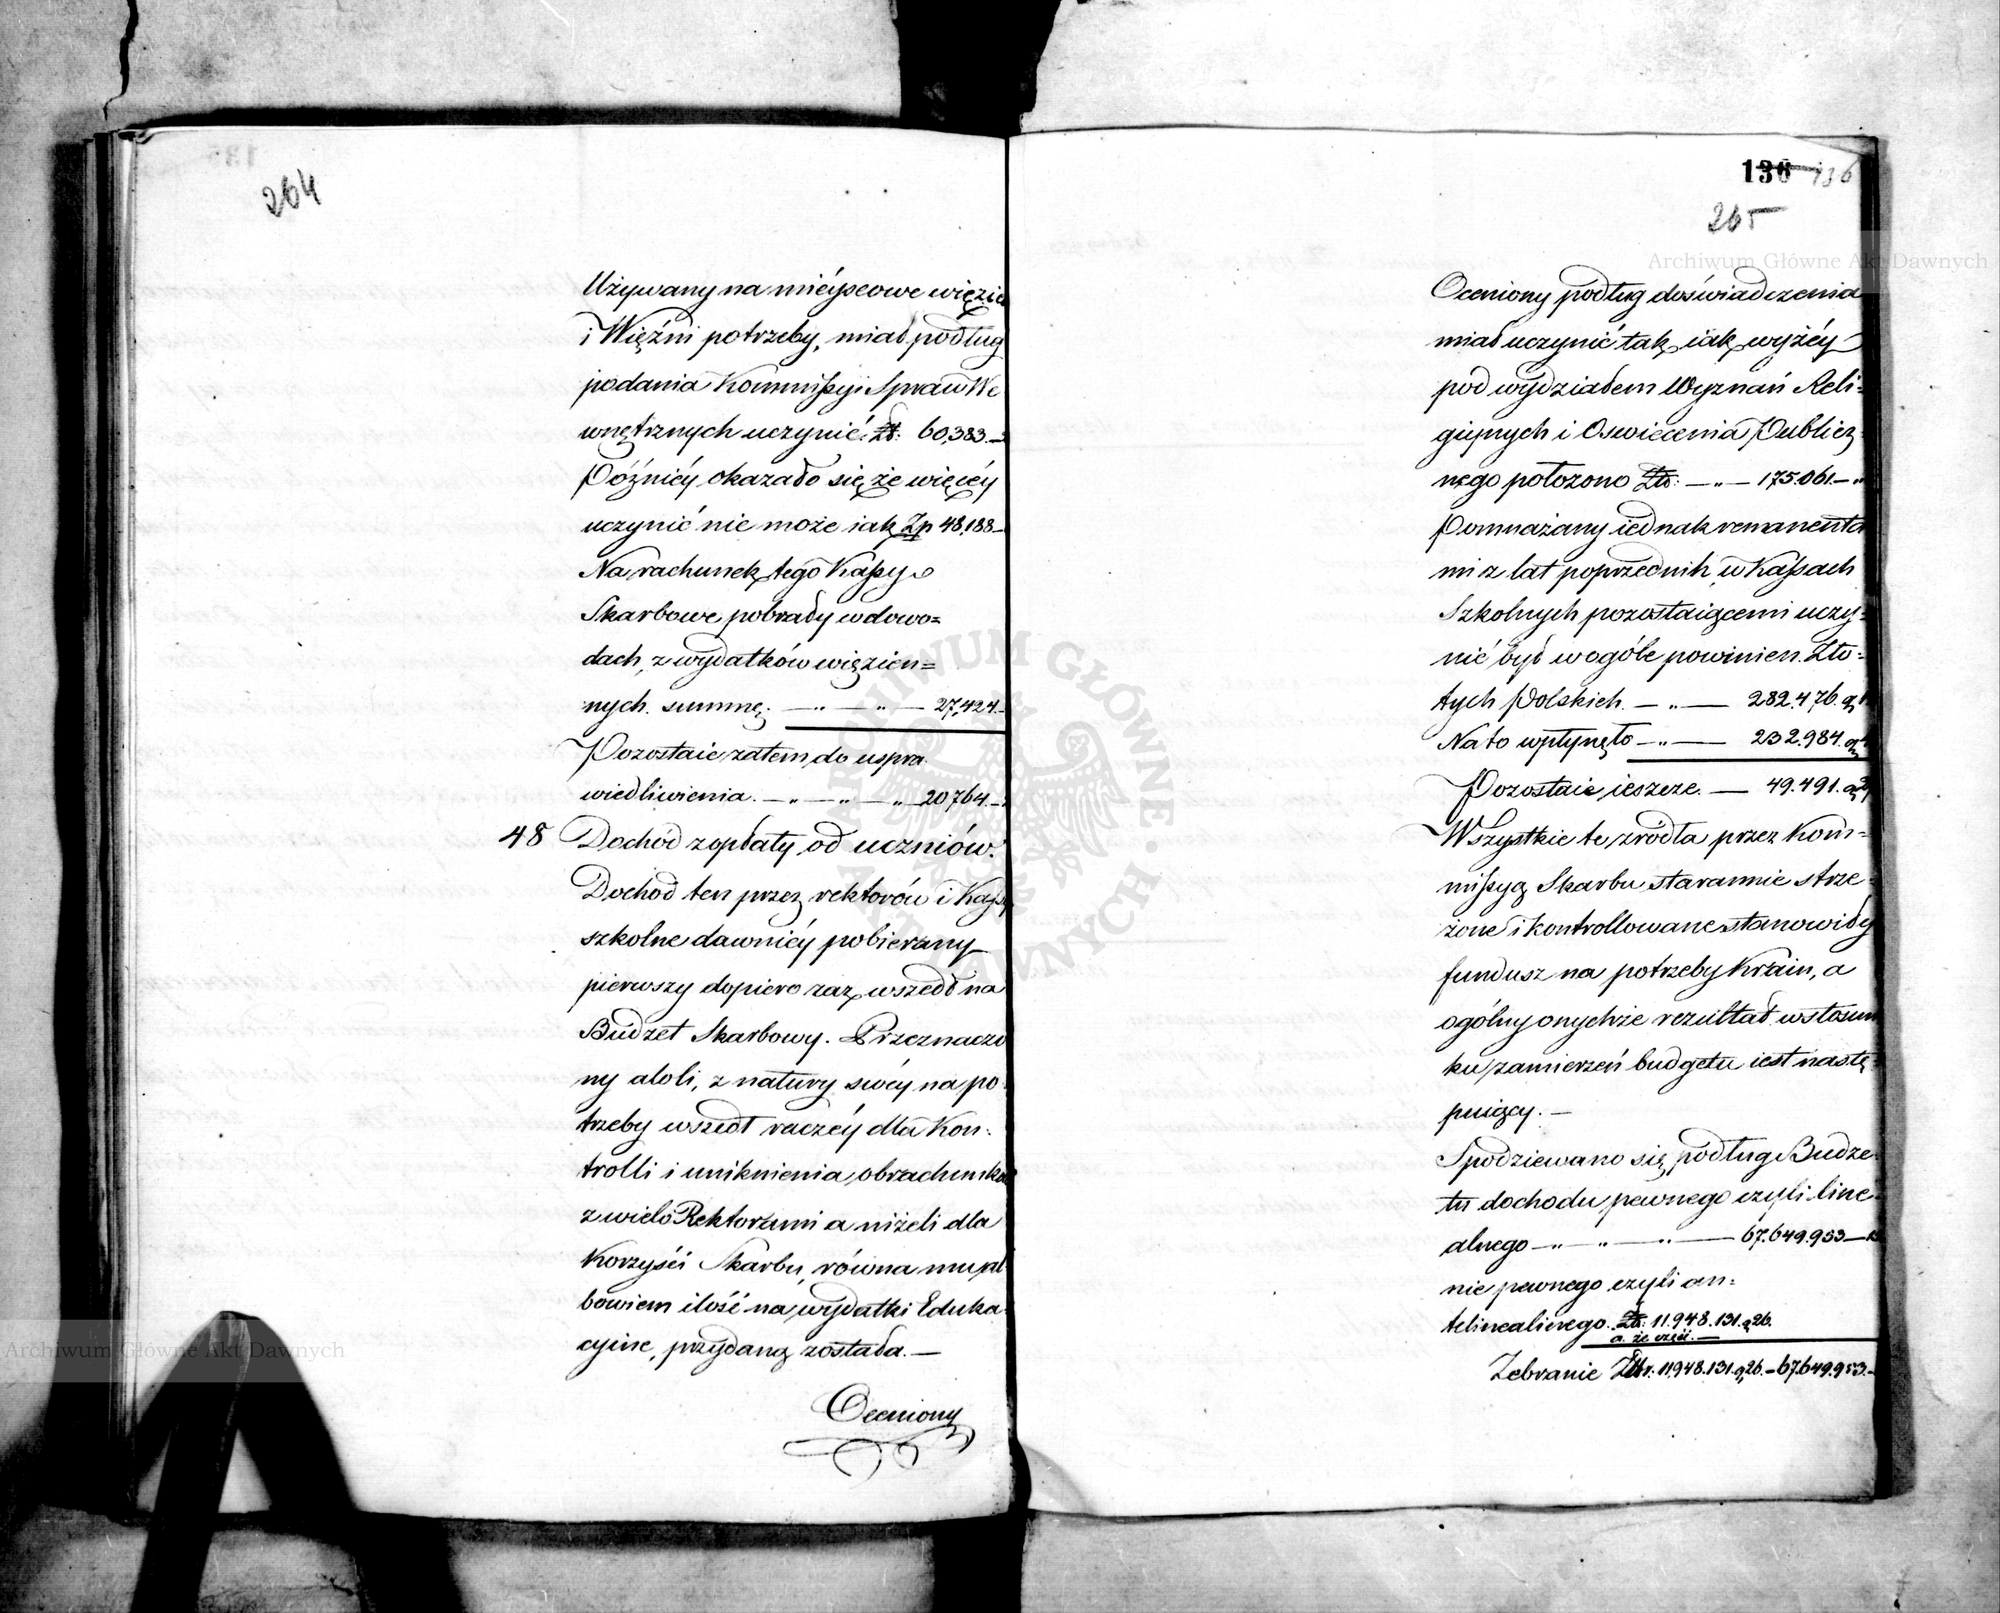 264
Używany na mieyscowe więzie
i Więźni potrzeby, miał podług
podania Kommissyi Spraw We
wnętrznych uczynić Zł: 60,383.—
Późniéy okazało się że więcéy
uczynić nie może iak Zp 48,188—
Na rachunek tego Kassy
Skarbowe pobrały w dowo=
dach, z wydatków więzien=
nych summę. —„—„— 27,424.—
Pozostaie zatem do uspra
wiedliwienia. —„—„—„ 20764.—
48 Dochód z opłaty od uczniów.
Dochod ten przez rektorów i Kassy
szkolne dawniéy pobierany
pierwszy dopiero raz wszedł na
Budżet Skarbowy. Przeznaczo
ny atoli, z natury swéy na po
trzeby wszedł raczéy dla Kon:
trolli i uniknienia obrachunków
z wielo Rektorami a niżeli dla
Korzyści Skarbu, równa mu
bowiem ilość na wydatki Eduka
cyine, przydaną została.—
Oceniony
136 136
265
Archiwum Główne Akt Dawnych
Oceniony podług doświadczenia
miał uczynić tak iak wyżéy
pod wydziałem Wyznań Reli=
giynych i Oswiecenia Publicz
nego położono Złł: —„— 175.061.—„
Pomnażany iednak remanenta
mi z lat poprzednih, w Kassach
Szkolnych pozostaiącemi uczy=
nić był wogóle powinien. Zło=
tych Polskich. —„— 282.476. g
Na to wpłynęło —„— 232.984. g
Pozostaie ieszcze. — 49.491. g
Wszystkie te zródła przez Kom=
missyą Skarbu starannie strze
żone i kontrollowane stanowiły
fundusz na potrzeby Krain, a
ogólny onychże rezultat w stosun
ku zamierzeń budgetu iest nastę
puiący.—
Spodziewano się podług Budże
tu dochodu pewnego czyli line
alnego —„—„—„— 67.649.953—
nie pewnego czyli an=
telinealnego. Zł: 11.948.131. g 26.
a. że część.—
Zebranie Złłr. 11.948.131. g 26.—67.649.953.—
Archiwum Główne Akt Dawnych
ARCHIWUM GŁÓWNE AKT DAWNYCH